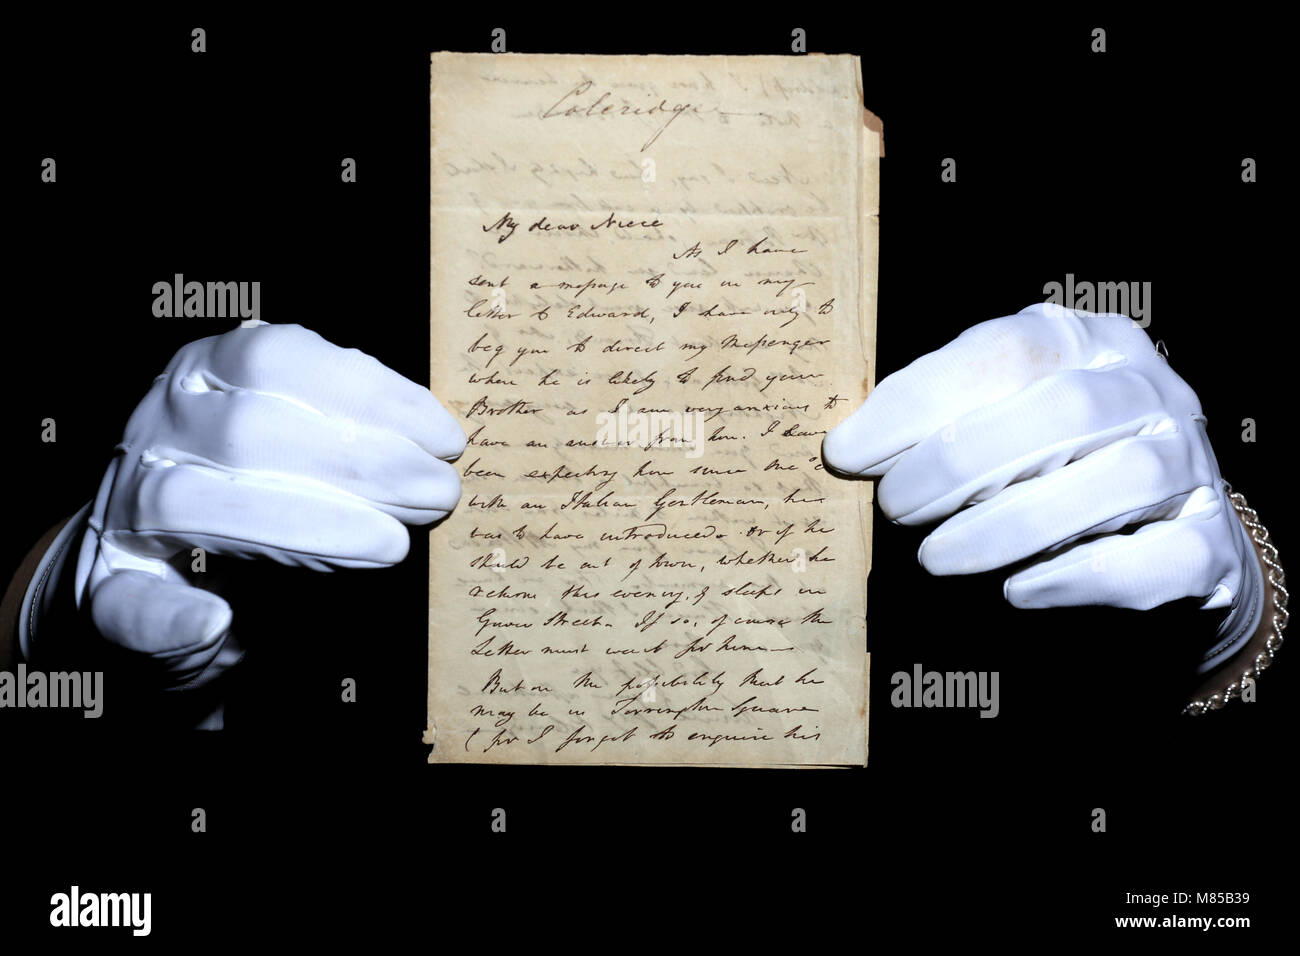 Coleridge
My dear Niece
As I have
sent a message to you in my
letter to Edward, I have only to
beg you to direct my Messenger
where he is likely to find your
Brother as I am very anxious to
have an answer from him. I have
been expecting him since one o'c
with an Italian Gentleman, he
was to have introduced - or if he
should be out of town, whether he
returns this evening, & sleeps in
Gower Street. If so, of course the
Letter must wait for him -
But on the possibility that he
may be in Torrington Square
(for I forgot to enquire his
alamy
alamy
alamy
alamy
alamy
Image ID: M85B39
www.alamy.com